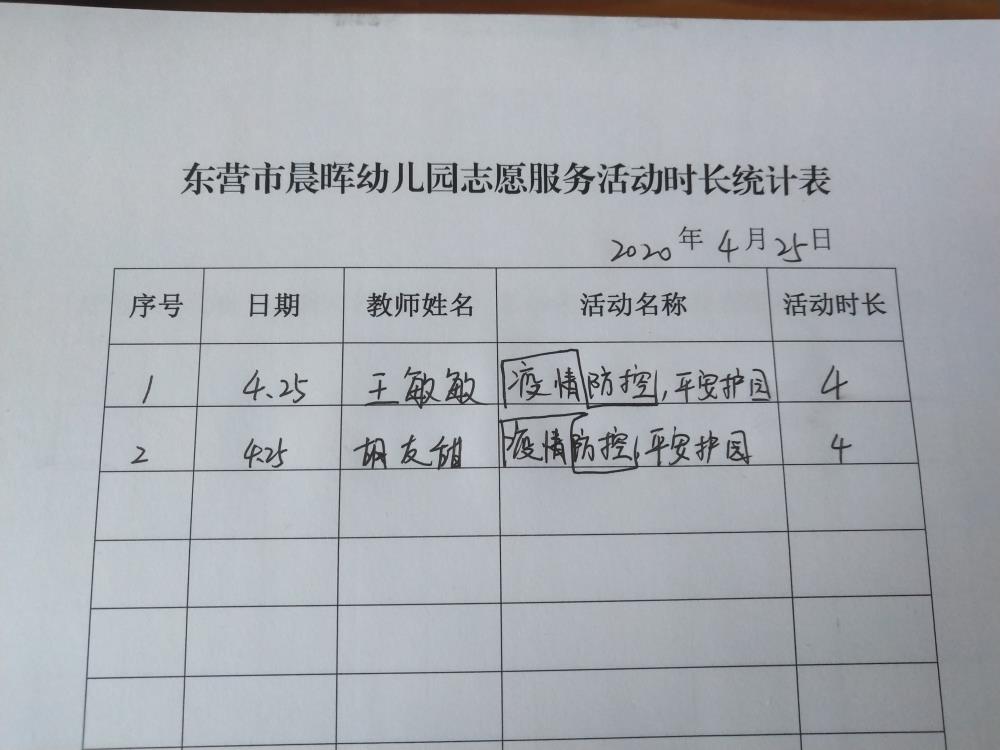 东营市晨晖幼儿园志愿服务活动时长统计表
2020年4月25日
序号 日期 教师姓名 活动名称 活动时长
1 4.25 王敏敏 疫情防控,平安护园 4
2 4.25 胡友甜 疫情防控,平安护园 4